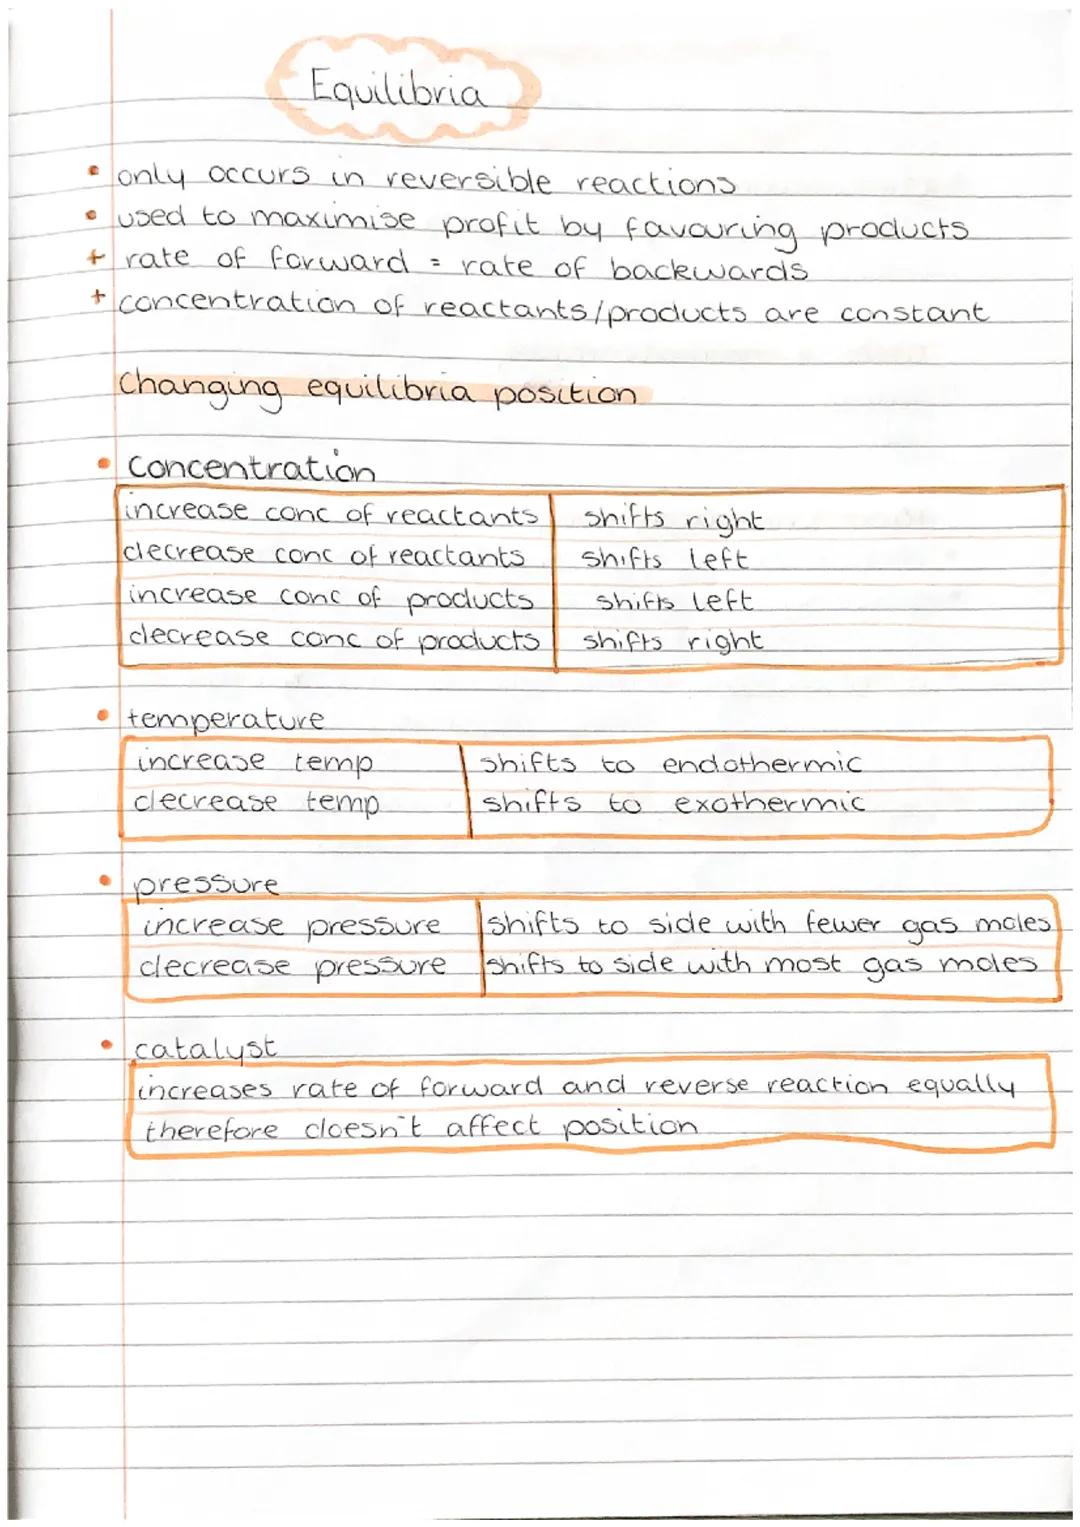 Equilibria
• only occurs in reversible reactions
• used to maximise profit by favouring products
+ rate of forward = rate of backwards
+ concentration of reactants/products are constant
Changing equilibria position
• Concentration
increase conc of reactants shifts right
decrease conc of reactants shifts left
increase conc of products shifts left
decrease conc of products shifts right
• temperature
increase temp shifts to endothermic
decrease temp shifts to exothermic
• pressure
increase pressure shifts to side with fewer gas moles
decrease pressure shifts to side with most gas moles
• catalyst
increases rate of forward and reverse reaction equally
therefore doesn't affect position